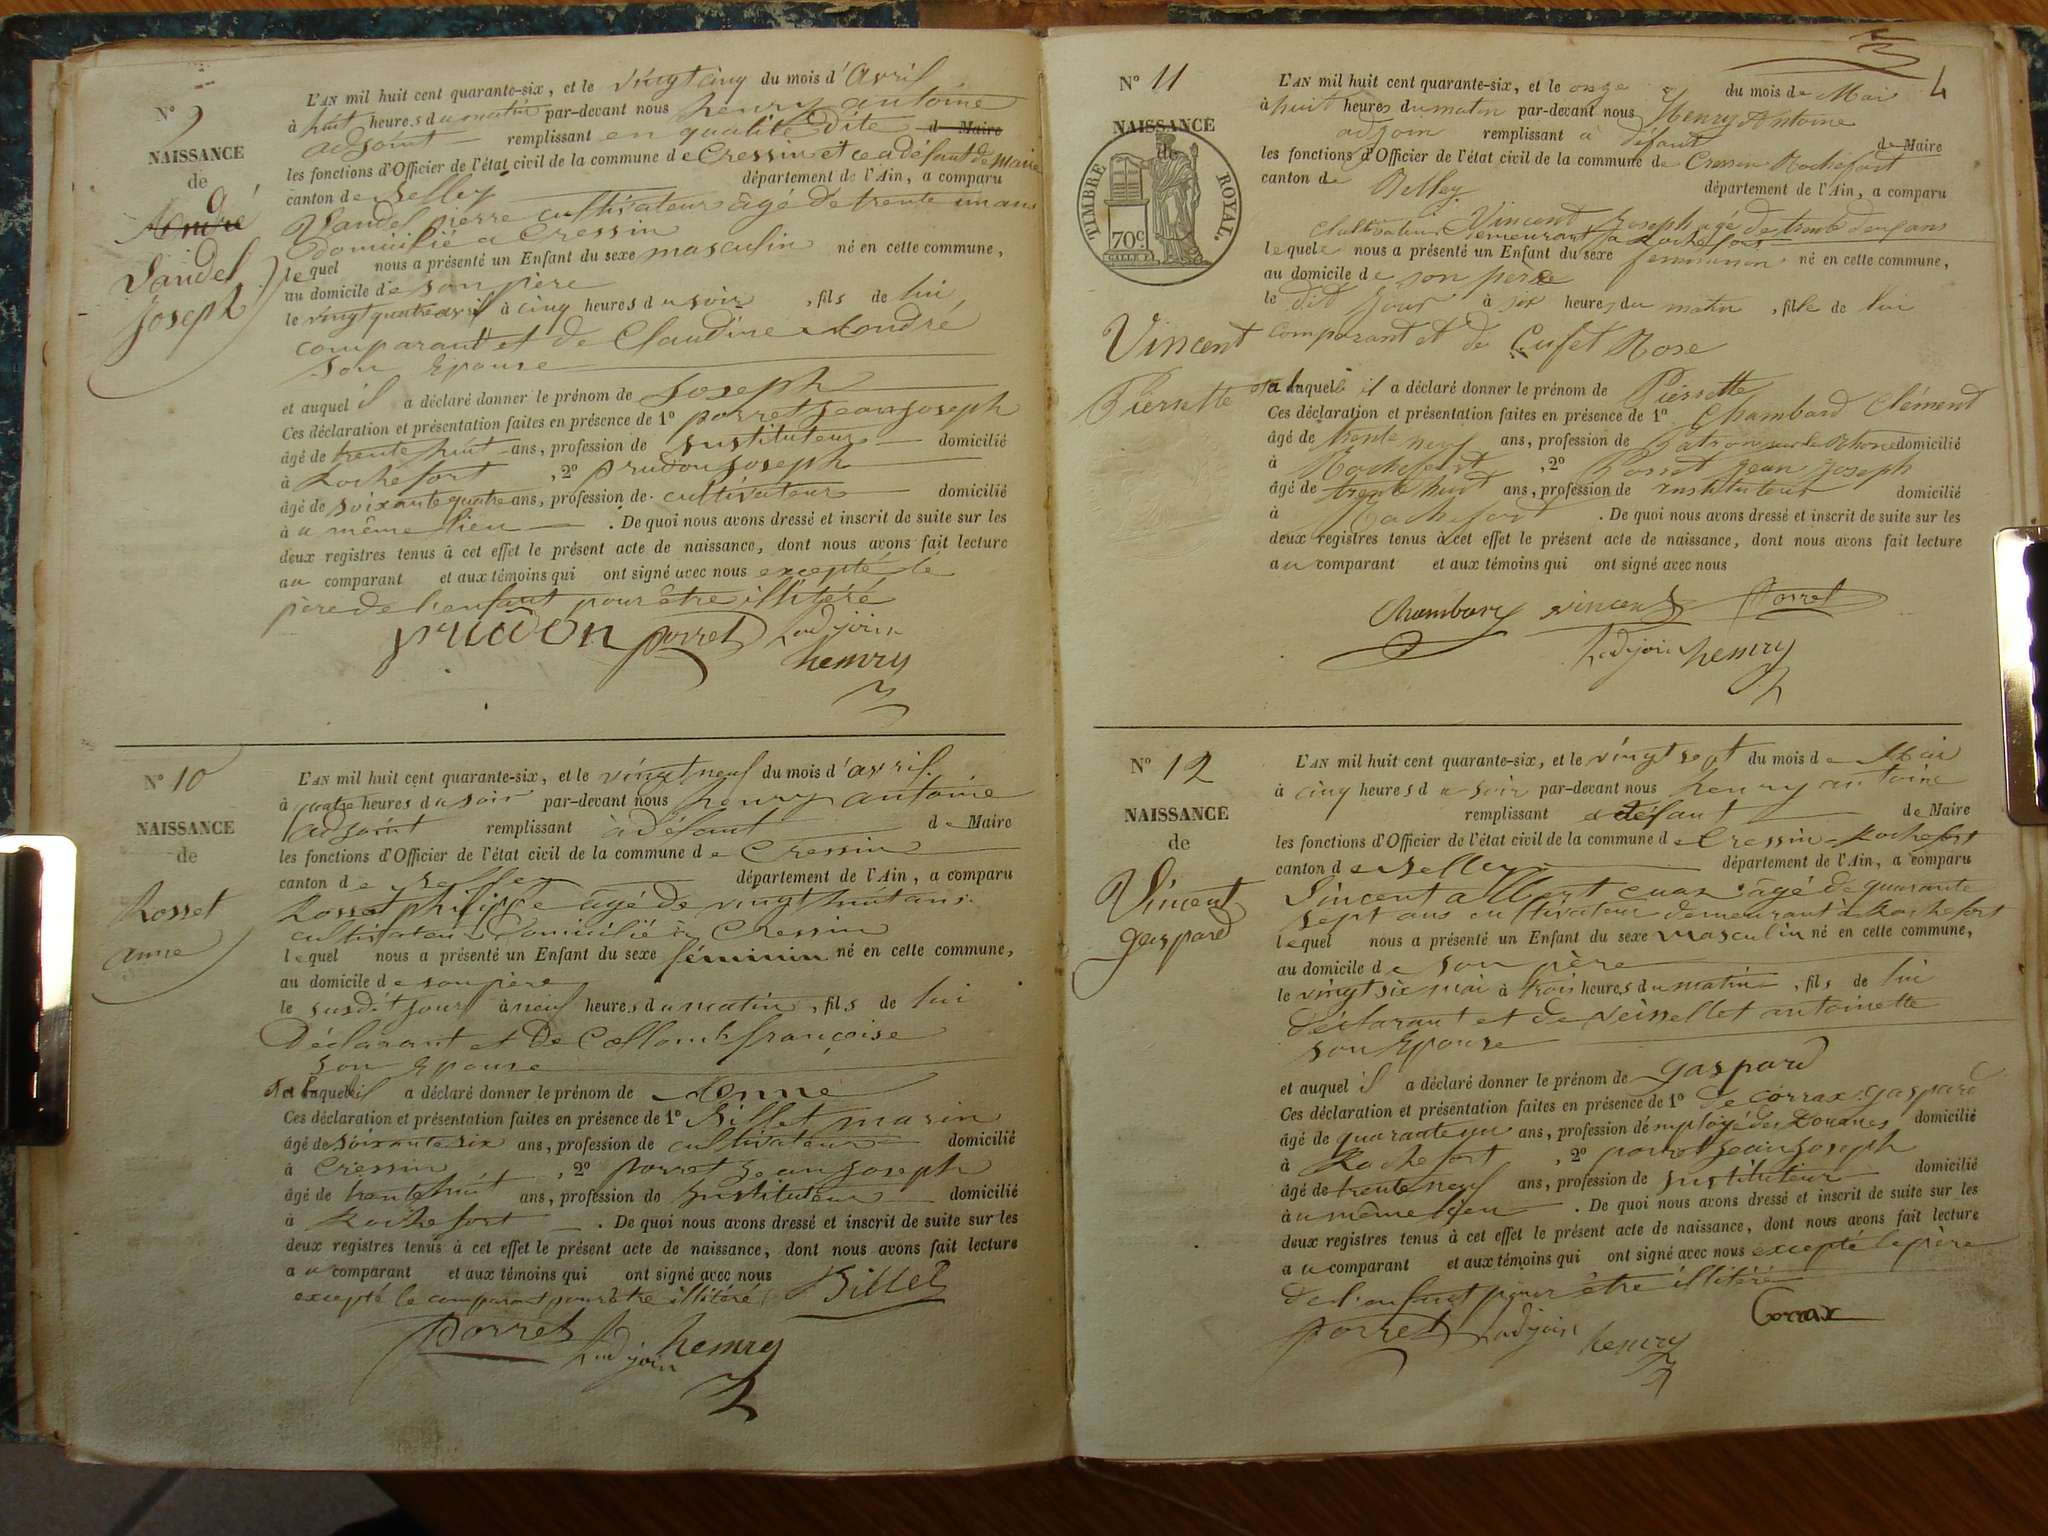 N° 9
NAISSANCE
de
André
Vandel
Joseph
L'AN mil huit cent quarante-six, et le vingt cinq du mois d'avril
à huit heures du matin par-devant nous henry antoine
adjoint remplissant en qualité dite d Maire
les fonctions d'Officier de l'état civil de la commune de Cressin et ce a défaut de Maire
canton de Belley département de l'Ain, a comparu
Vandel pierre cultivateur âgé de trente un ans
domicilié a Cressin
lequel nous a présenté un Enfant du sexe masculin né en cette commune,
au domicile de son père
le vingt quatre avril à cinq heures du soir, fils de lui
comparant et de Claudine André
son Epouse
et auquel il a déclaré donner le prénom de Joseph
Ces déclaration et présentation faites en présence de 1° porret jean joseph
âgé de trente huit ans, profession de instituteur domicilié
à Rochefort, 2° prudon joseph
âgé de soixante quatre ans, profession de cultivateur domicilié
à u même lieu. De quoi nous avons dressé et inscrit de suite sur les
deux registres tenus à cet effet le présent acte de naissance, dont nous avons fait lecture
au comparant et aux témoins qui ont signé avec nous excepté le
père de l'enfant pour être illitéré
prudon porret Ladjoin
henry
N° 10
NAISSANCE
de
Rosset
anne
L'AN mil huit cent quarante-six, et le vingt neuf du mois d'avril
à quatre heures du soir par-devant nous henry antoine
adjoint remplissant à défaut de Maire
les fonctions d'Officier de l'état civil de la commune de Cressin
canton de Belley département de l'Ain, a comparu
Rosset philippe âgé de vingt huit ans
cultivateur domicilié à Cressin
lequel nous a présenté un Enfant du sexe féminin né en cette commune,
au domicile de son père
le susdit jour à neuf heures du matin, fils de lui
Déclarant et de Collomb françoise
son Epouse
et laquelle il a déclaré donner le prénom de Anne
Ces déclaration et présentation faites en présence de 1° Billet marin
âgé de soixante six ans, profession de cultivateur domicilié
à Cressin, 2° porret jean joseph
âgé de trente huit ans, profession de instituteur domicilié
à Rochefort. De quoi nous avons dressé et inscrit de suite sur les
deux registres tenus à cet effet le présent acte de naissance, dont nous avons fait lecture
au comparant et aux témoins qui ont signé avec nous
excepté le comparant pour être illitéré Billet
Porret Ladjoin henry
4
N° 11
NAISSANCE
de
TIMBRE ROYAL.
70c
Vincent
Pierrette
L'AN mil huit cent quarante-six, et le onze du mois de Mai
à huit heures du matin par-devant nous Henry Antoine
adjoin remplissant à défaut de Maire
les fonctions d'Officier de l'état civil de la commune de Cressin Rochefort
canton de Belley département de l'Ain, a comparu
Vincent Joseph agé de trente deux ans
cultivateur demeurant à Rochefort
lequel nous a présenté un Enfant du sexe féminin né en cette commune,
au domicile de son père
le dit jour à six heures du matin, fille de lui
comparant et de Cufet Rose
et à laquelle il a déclaré donner le prénom de Pierrette
Ces déclaration et présentation faites en présence de 1° Chambard Clément
âgé de trente neuf ans, profession de Patron sur le Rhône domicilié
à Rochefort, 2° Porret Jean Joseph
âgé de trente huit ans, profession de instituteur domicilié
à Rochefort. De quoi nous avons dressé et inscrit de suite sur les
deux registres tenus à cet effet le présent acte de naissance, dont nous avons fait lecture
au comparant et aux témoins qui ont signé avec nous
Chambard vincent Porret
Ladjoin henry
N° 12
NAISSANCE
de
Vincent
gaspard
L'AN mil huit cent quarante-six, et le vingt sept du mois de Mai
à cinq heures du soir par-devant nous henry antoine
remplissant a défaut de Maire
les fonctions d'Officier de l'état civil de la commune de Cressin-Rochefort
canton de Belley département de l'Ain, a comparu
Vincent âgé de quarante
sept ans cultivateur demeurant à Rochefort
lequel nous a présenté un Enfant du sexe masculin né en cette commune,
au domicile de son père
le vingt six mai à trois heures du matin, fils de lui
déclarant et de Veissellet antoinette
son Epouse
et auquel il a déclaré donner le prénom de gaspard
Ces déclaration et présentation faites en présence de 1° de Corrax gaspard
âgé de quarante un ans, profession d'employé des Douanes domicilié
à Rochefort, 2° porret jean joseph
âgé de trente neuf ans, profession de instituteur domicilié
à u même lieu. De quoi nous avons dressé et inscrit de suite sur les
deux registres tenus à cet effet le présent acte de naissance, dont nous avons fait lecture
au comparant et aux témoins qui ont signé avec nous excepté le père
de l'enfant pour être illitéré
Corrax
porret Ladjoin henry